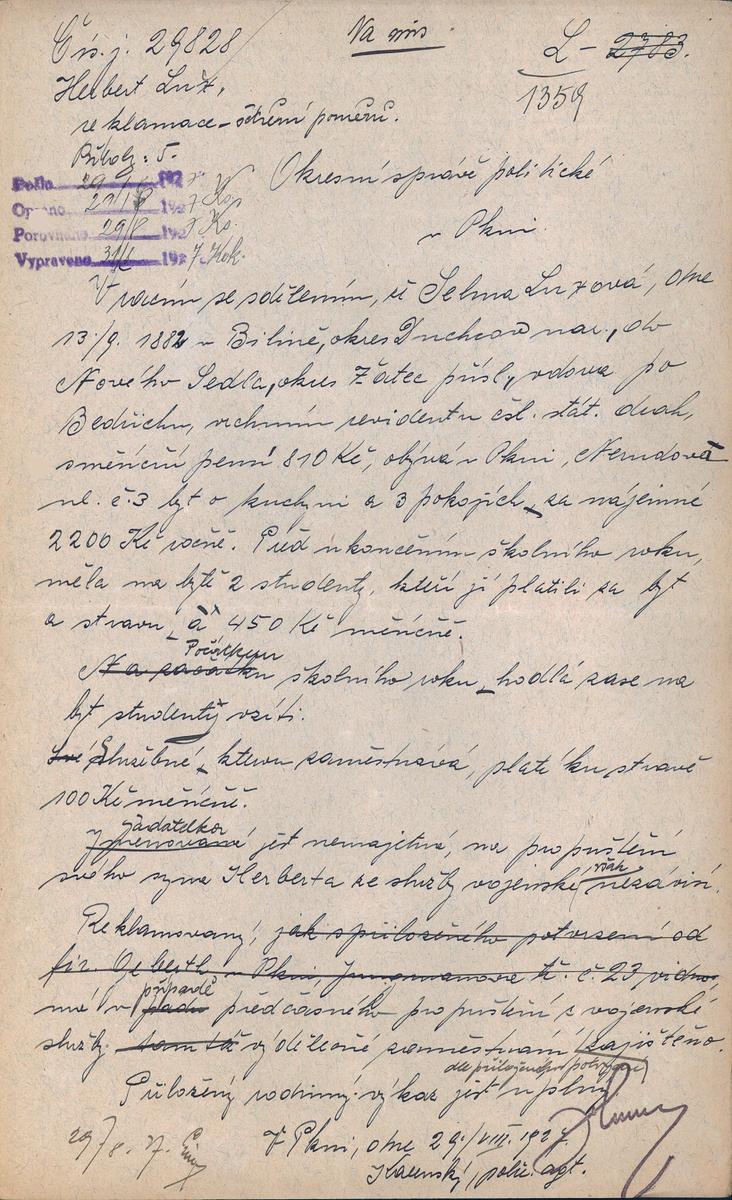 Čís. j. 29828
Na mís
L - 2783.
1359
Herbert Lux,
reklamace - šetření poměrů.
Příloh: 5.
Došlo 29/8 1927
Opsáno 29/8 1927
Porovnáno 29/8 1927
Vypraveno 31/8 1927
Okresní správě politické
v Plzni.
Vracím se sdělením, že Selma Luxová, dne
13./9. 1882 v Bílině, okres Duchcov nar., do
Nového Sedla, okres Žatec přísl., vdova po
Bedřichu, vrchním revidentu čsl. stát. drah,
s měsíční pensí 810 Kč, obývá v Plzni, Nerudova
ul. č. 3 byt o kuchyni a 3 pokojích, za nájemné
2200 Kč ročně. Před ukončením školního roku,
měla na bytě 2 studenty, kteří jí platili za byt
a stravu, à 450 Kč měsíčně.
Počátkem
Na začátku školního roku, hodlá zase na
byt studenty vzíti.
své Služebné, kterou zaměstnává, platí ku stravě
100 Kč měsíčně.
žadatelka
Jmenovaná jest nemajetná, na propuštění
však
svého syna Herberta ze služby vojenské nezávisí.
Reklamovaný, jak s přiloženého potvrzení od
fir. v Plzni, Jungmanova tř. č. 23 vidno,
případě
má v předčasného propuštění z vojenské
služby tamtéž výdělečné zaměstnání zajištěno.
dle přiloženého potvrzení
Přiložený rodinný výkaz jest úplný.
V Plzni, dne 29./VIII. 1927.
29/8. 27.
polic. agt.